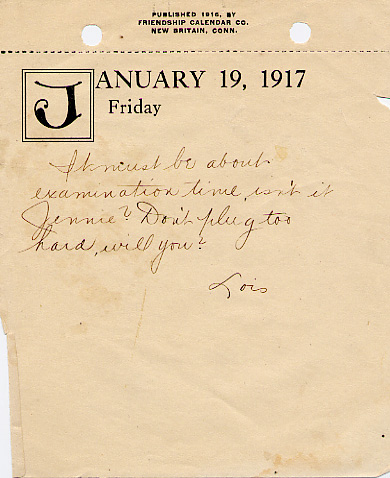 PUBLISHED 1916, BY
FRIENDSHIP CALENDAR CO.
NEW BRITAIN, CONN.
JANUARY 19, 1917
Friday
It must be about
examination time, isn't it
Jennie? Don't plug too
hard, will you?
Lois